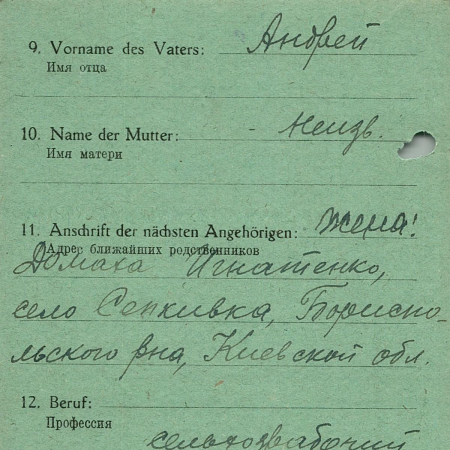 9. Vorname des Vaters: Андрей
Имя отца
10. Name der Mutter: Неизв.
Имя матери
11. Anschrift der nächsten Angehörigen: Жена:
Адрес ближайших родственников
Домаха Игнатенко,
село Сенкивка, Бориспо-
льского р-на, Киевской обл.
12. Beruf:
Профессия
сельхозрабочий